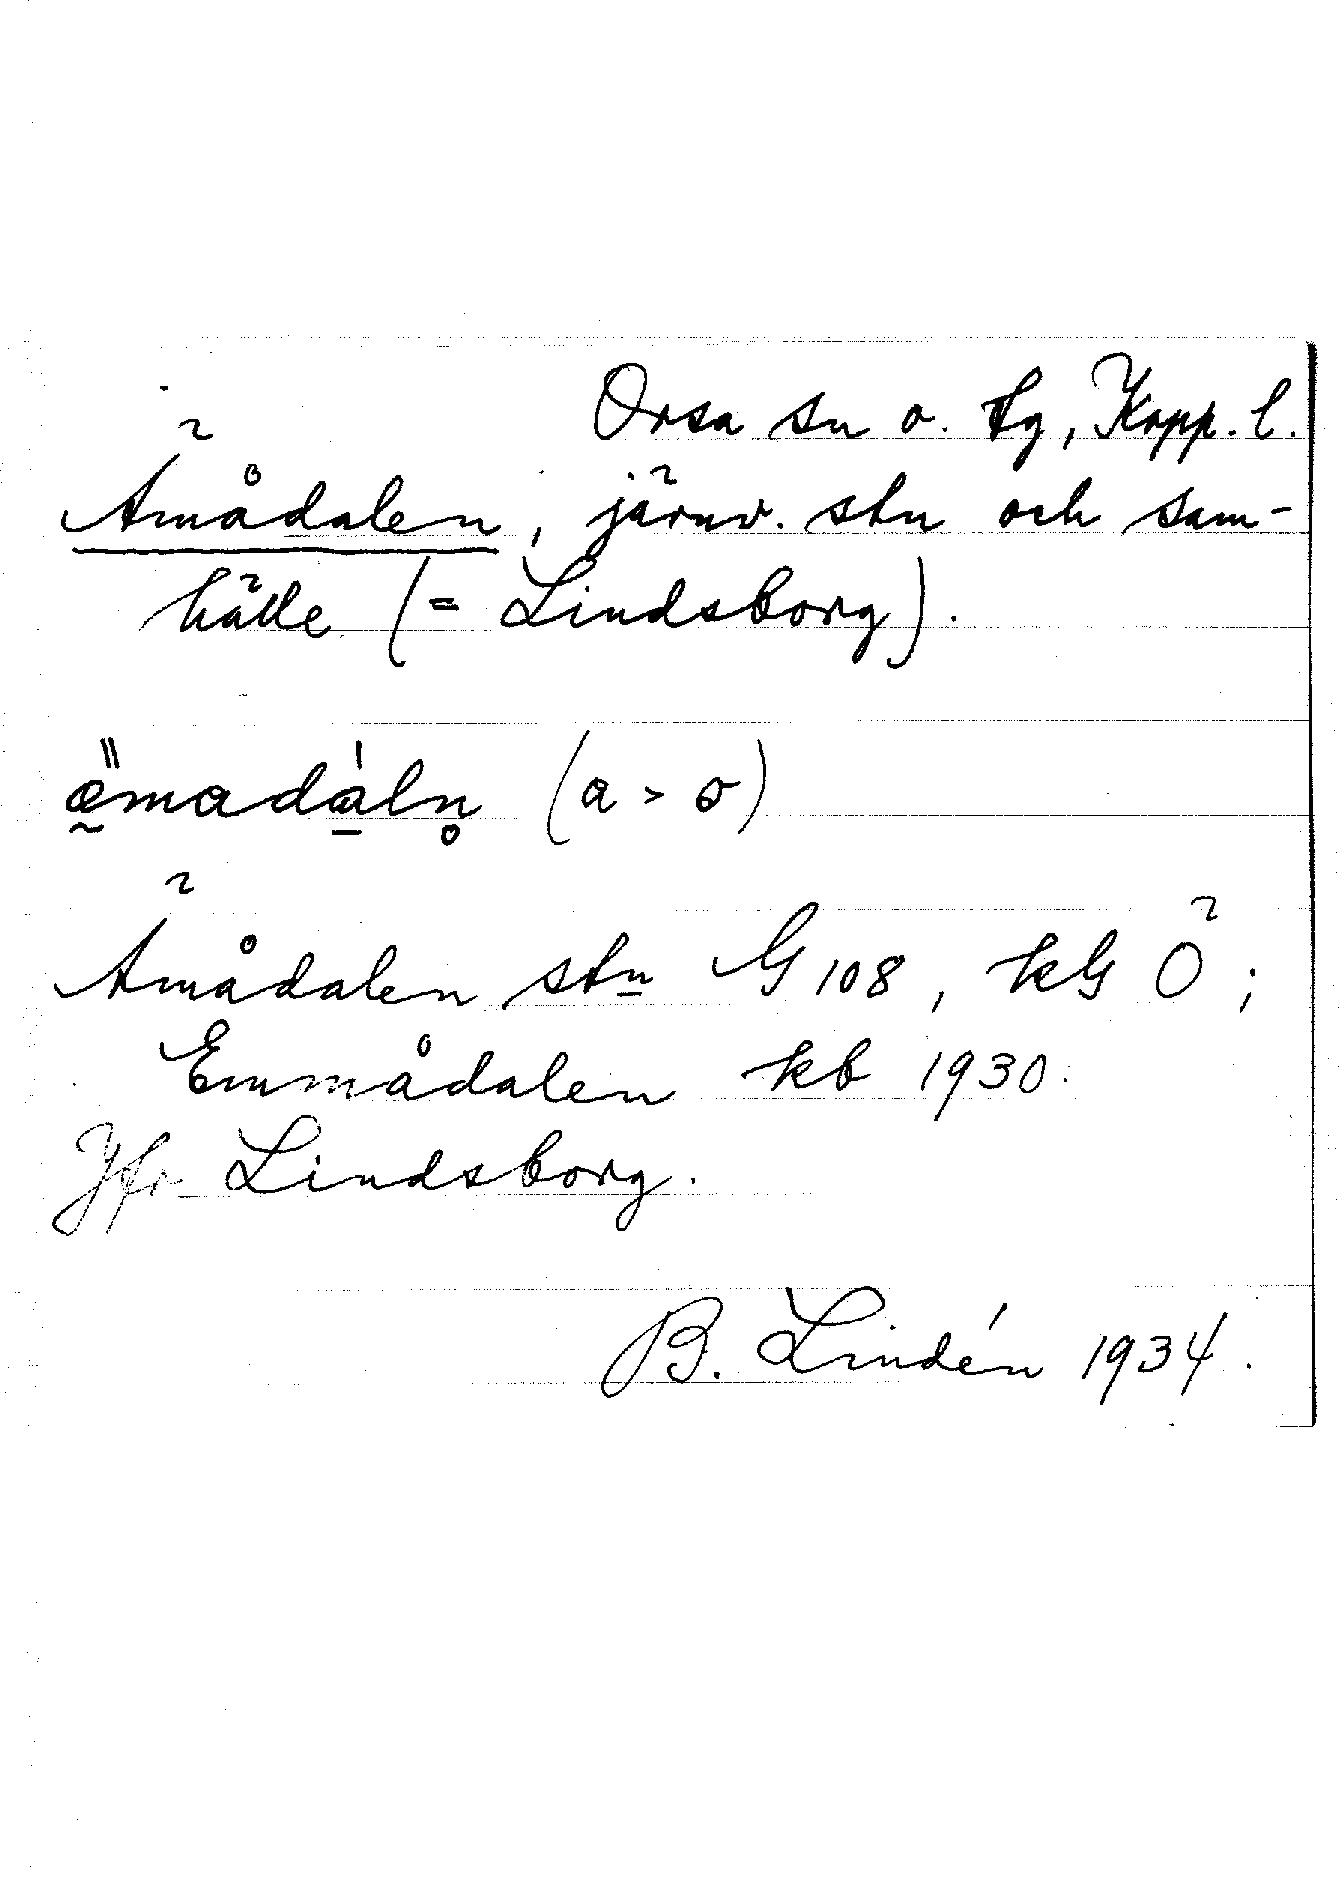 Orsa sn o. tg, Kopp. l.
Ämådalen, järnv. stn och sam-
hälle (= Lindsborg).
(a > o)
Ämådalen stn G 108, kG Ö;
Emmådalen kb 1930.
Jfr Lindsborg.
B. Lindén 1934.